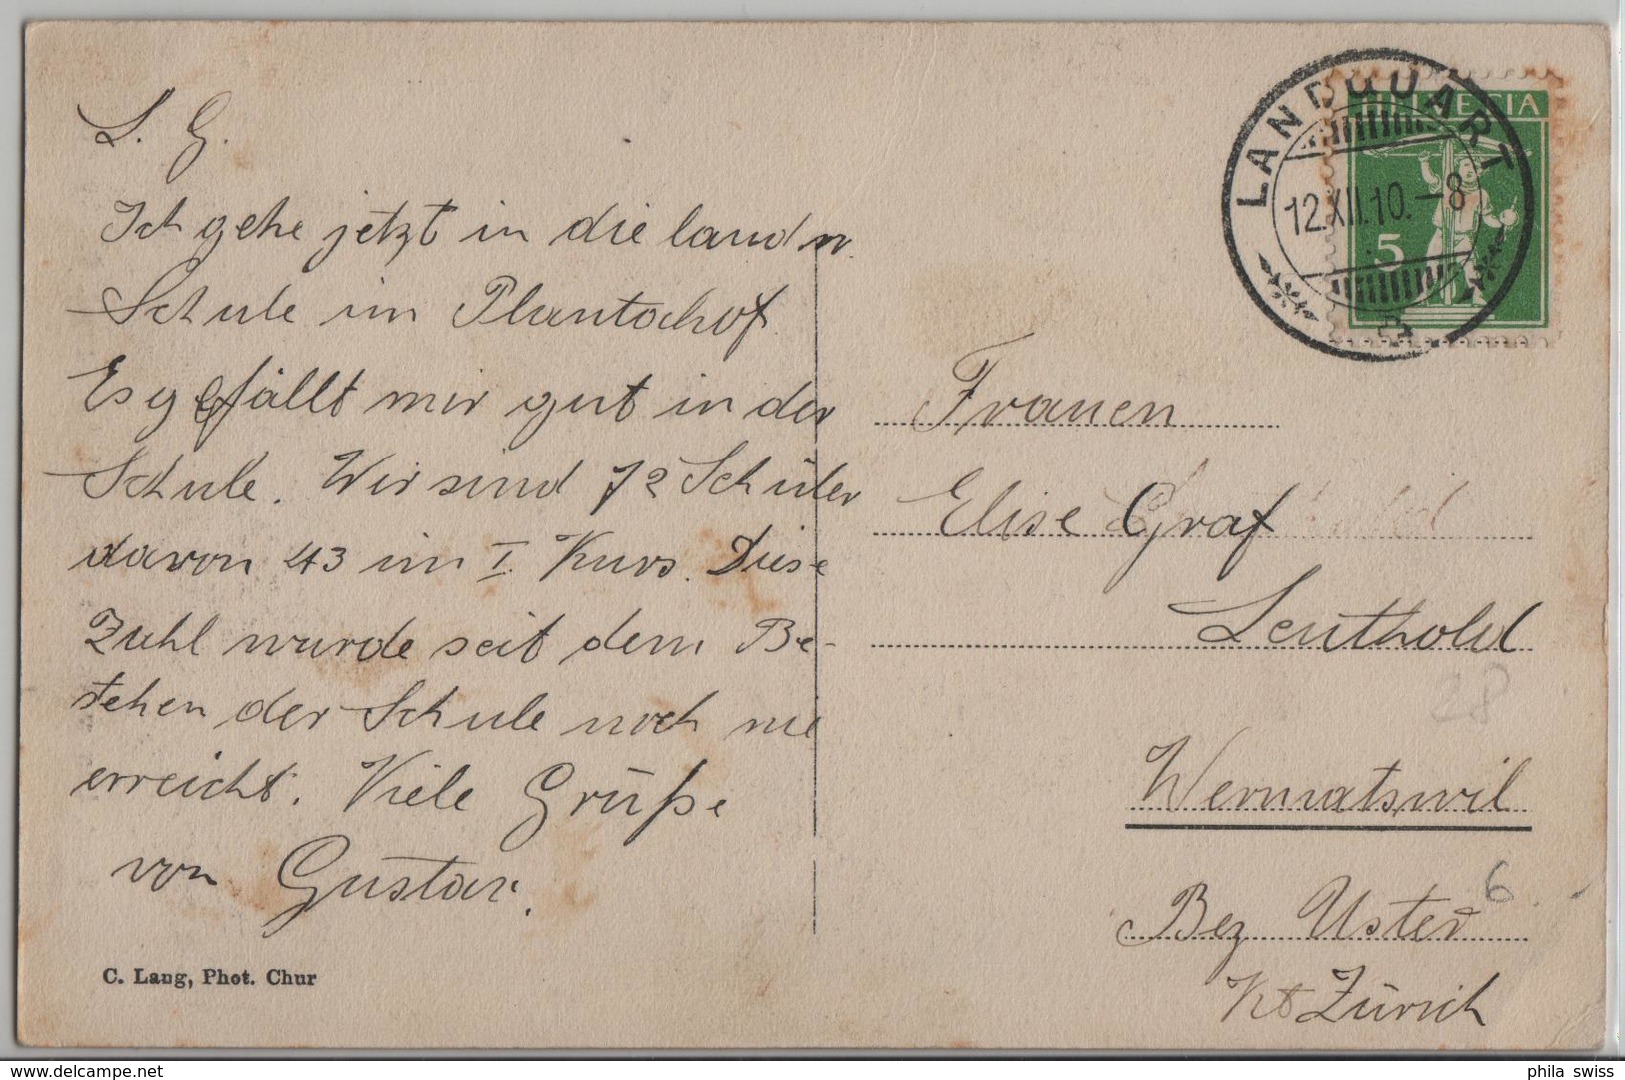 L. G.
Ich gehe jetzt in die landw.
Schule im Plantahof.
Es gefällt mir gut in der
Schule. Wir sind 72 Schüler
davon 43 im I. Kurs. Diese
Zahl wurde seit dem Be-
stehen der Schule noch nie
erreicht. Viele Grüße
von Gustav.
C. Lang, Phot. Chur
LANDQUART
12.XII.10.-8
HELVETIA
5
Frauen
Elise Graf
Leuthold
28
Wermatswil
6
Bez Uster
Kt Zürich
phila swiss